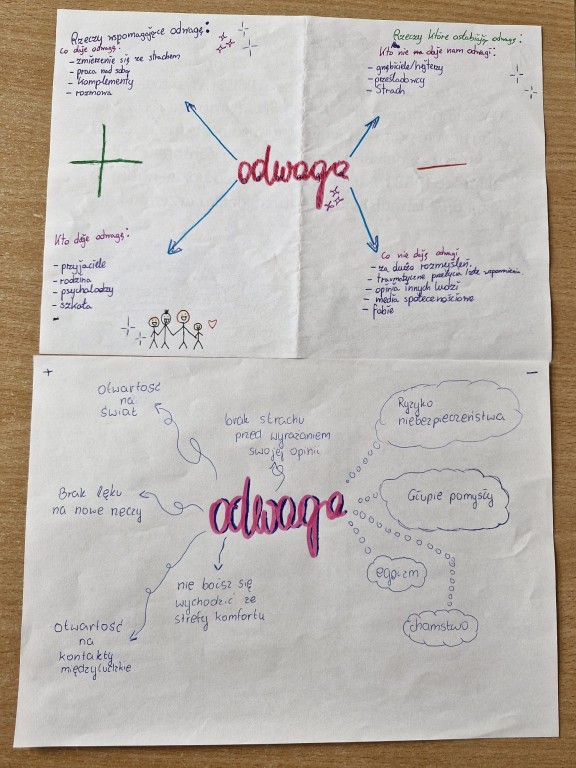 Rzeczy wspomagające odwagę:
Co daje odwagę:
- zmierzenie się ze strachem
- praca nad sobą
- Komplementy
- rozmowa
Rzeczy które osłabiają odwagę:
Kto nie ma daje nam odwagi:
- gnębiciele/hejterzy
- prześladowcy
- Strach
odwaga
Kto daje odwagę:
- przyjaciele
- rodzina
- psycholodzy
- szkoła
-
Co nie daję odwagi
- za dużo rozmyśleń.
- traumatyczne przeżycia / złe wspomnienia
- opinia innych ludzi
- media społecznościowe
- fobie
+
-
Otwartość
na
świat
brak strachu
przed wyrażaniem
swojej opinii
Ryzyko
niebezpieczeństwa
Brak lęku
na nowe rzeczy
odwaga
Głupie pomysły
egoizm
nie boisz się
wychodzić ze
strefy komfortu
chamstwo
Otwartość
na
kontakty
międzyludzkie